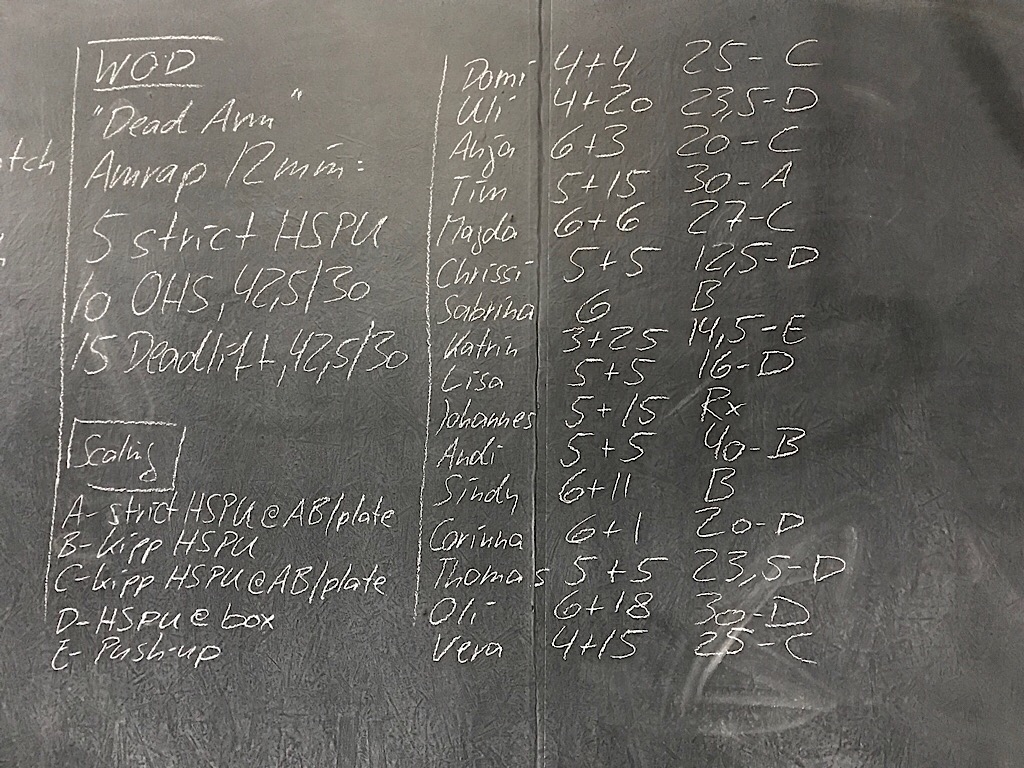 WOD
"Dead Arm"
Amrap 12 min:
5 strict HSPU
10 OHS, 42,5/30
15 Deadlift, 42,5/30
Scaling
A- strict HSPU @ AB/plate
B- kipp HSPU
C- kipp HSPU @ AB/plate
D- HSPU @ box
E- Push-up
Domi 4+4 25-C
Uli 4+20 23,5-D
Anja 6+3 20-C
Tim 5+15 30-A
Magda 6+6 27-C
Chrissi 5+5 12,5-D
Sabrina 6 B
Katrin 3+25 14,5-E
Lisa 5+5 16-D
Johannes 5+15 Rx
Andi 5+5 40-B
Sindy 6+11 B
Corinna 6+1 20-D
Thomas 5+5 23,5-D
Oli 6+18 30-D
Vera 4+15 25-C